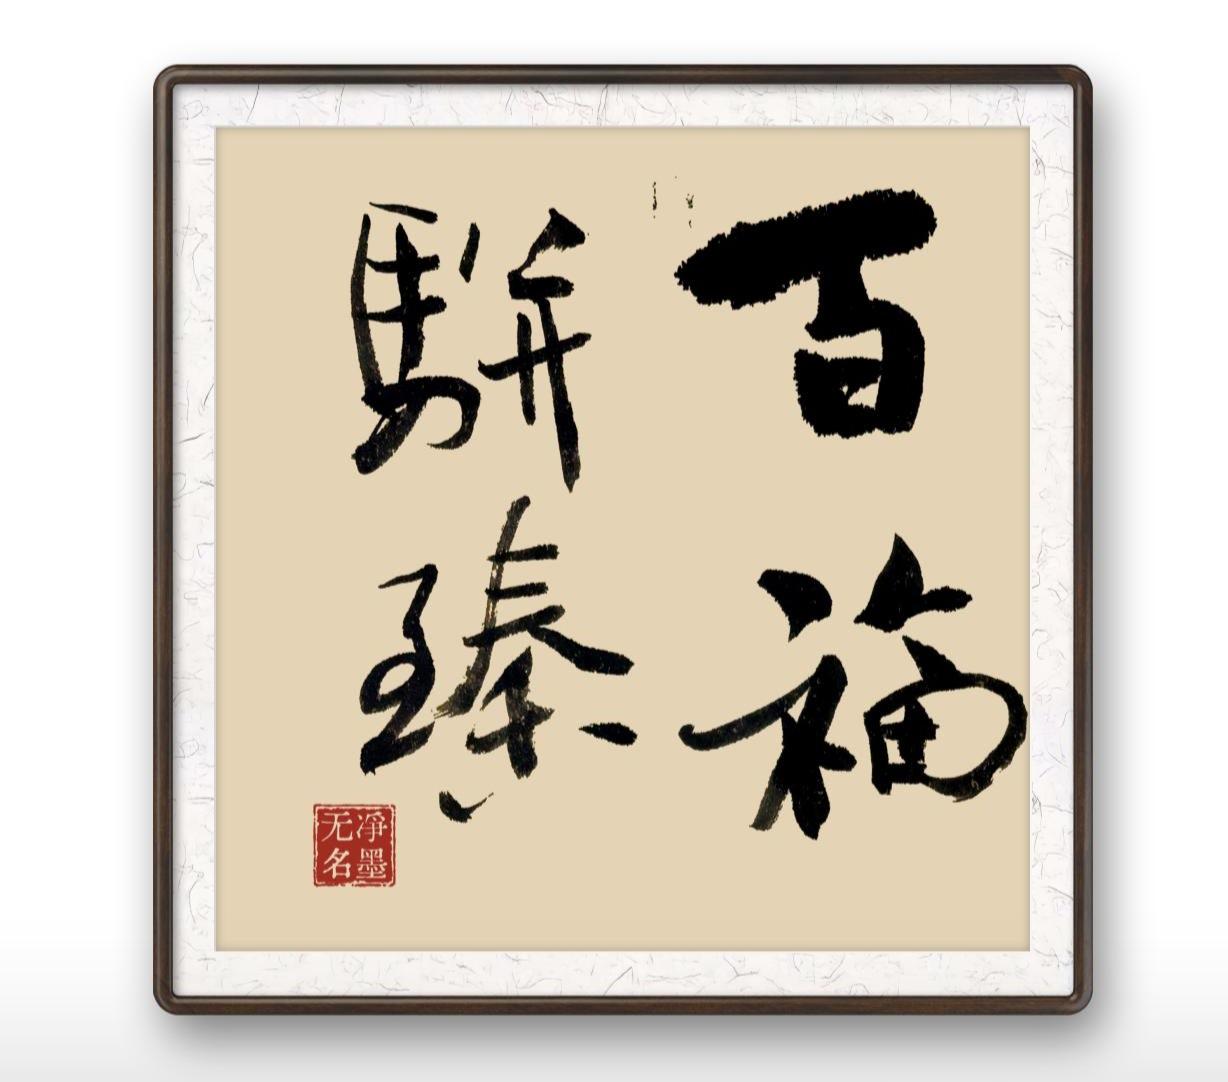 百福
駢臻
净墨
无名